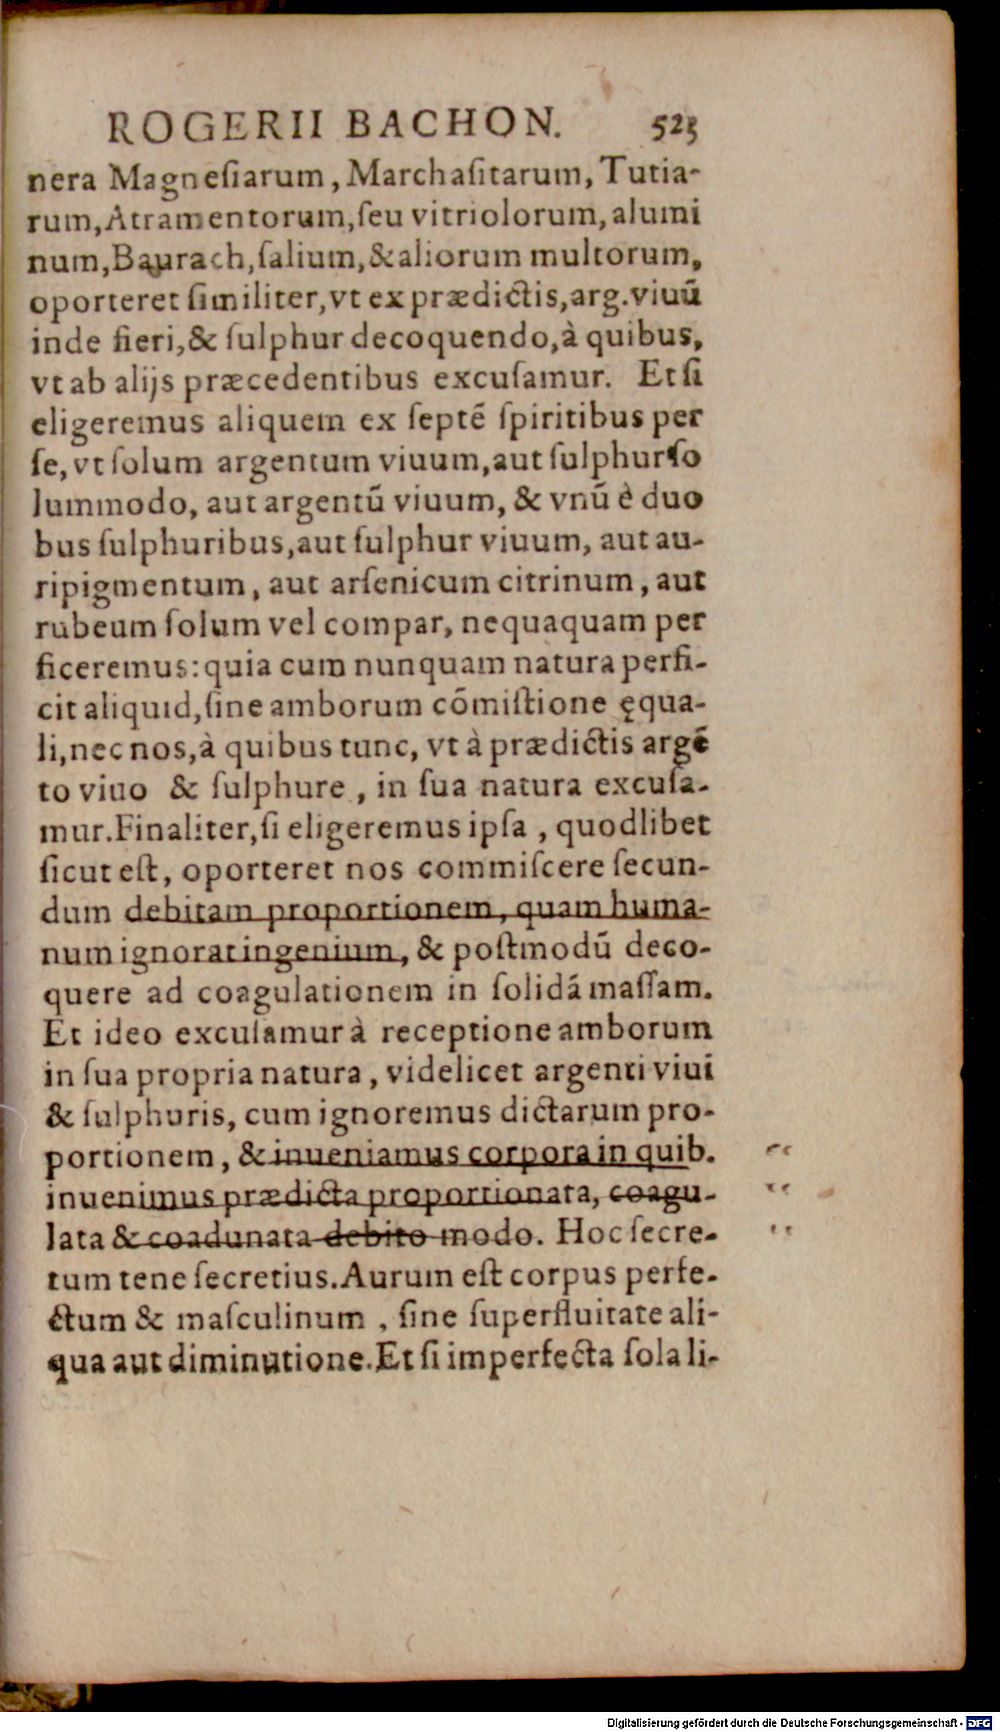 ROGERII BACHON. 523
nera Magneſiarum, Marchaſitarum, Tutia-
rum, Atramentorum, ſeu vitriolorum, alumi
num, Baurach, ſalium, & aliorum multorum,
oporteret ſimiliter, vt ex prædictis, arg. viuū
inde fieri, & ſulphur decoquendo, à quibus,
vt ab alijs præcedentibus excuſamur. Et ſi
eligeremus aliquem ex ſeptē ſpiritibus per
ſe, vt ſolum argentum viuum, aut ſulphur ſo
lummodo, aut argentū viuum, & vnū è duo
bus ſulphuribus, aut ſulphur viuum, aut au-
ripigmentum, aut arſenicum citrinum, aut
rubeum ſolum vel compar, nequaquam per
ficeremus: quia cum nunquam natura perfi-
cit aliquid, ſine amborum cōmiſtione ęqua-
li, nec nos, à quibus tunc, vt à prædictis argē
to viuo & ſulphure, in ſua natura excuſa-
mur. Finaliter, ſi eligeremus ipſa, quodlibet
ſicut eſt, oporteret nos commiſcere ſecun-
dum debitam proportionem, quam huma-
num ignorat ingenium, & poſtmodū deco-
quere ad coagulationem in ſolidā maſſam.
Et ideo excuſamur à receptione amborum
in ſua propria natura, videlicet argenti viui
& ſulphuris, cum ignoremus dictarum pro-
portionem, & inueniamus corpora in quib.
inuenimus prædicta proportionata, coagu-
lata & coadunata debito modo. Hoc ſecre-
tum tene ſecretius. Aurum eſt corpus perfe-
ctum & maſculinum, ſine ſuperfluitate ali-
qua aut diminutione. Et ſi imperfecta ſola li-
Digitalisierung gefördert durch die Deutsche Forschungsgemeinschaft - DFG